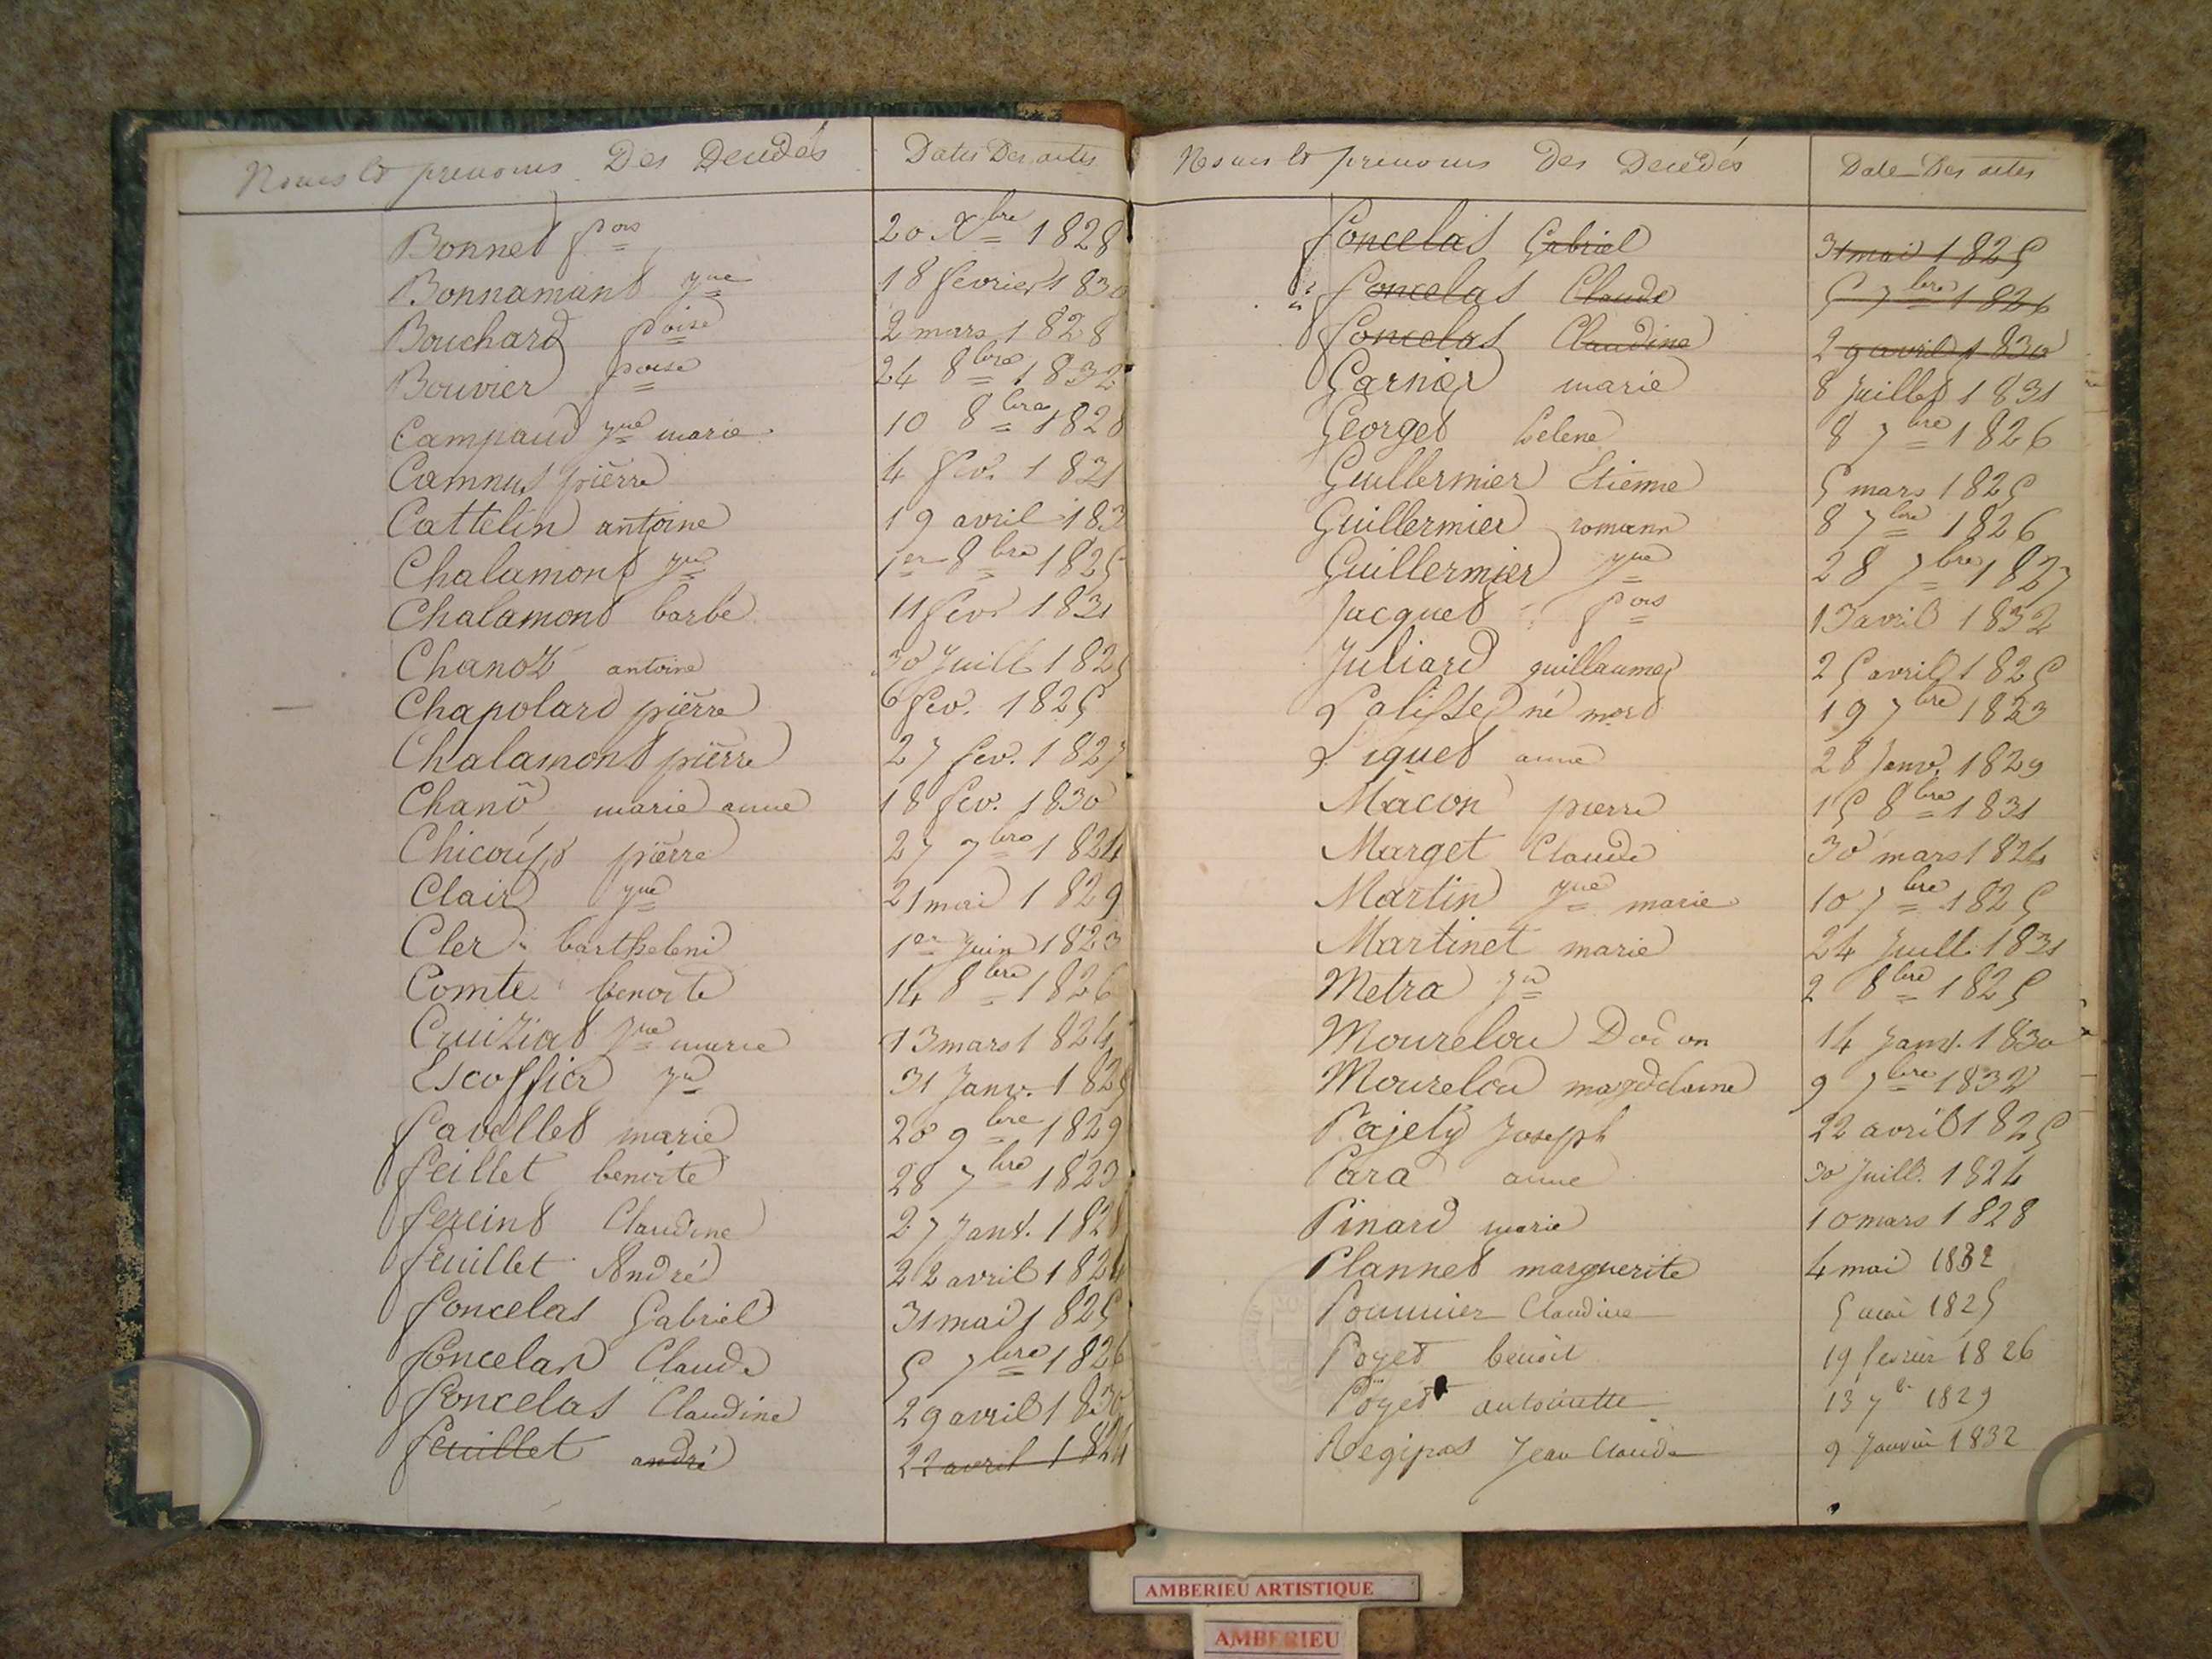 Noms et prenoms Des Decedés Dates Des actes
Bonnet fois 20 Xbre 1828
Bonnamant 18 fevrier 1830
Bouchard foise 2 mars 1828
Bouvier foise 24 8bre 1832
Campaud marie 10 8bre 1828
Camnus pierre 4 fév. 1831
Cattelin antoine 19 avril 183
Chalamont 1er 8bre 1825
Chalamont barbe 11 fevr 1831
Chanoz antoine 30 Juill 1825
Chapolard pierre 6 fev. 1825
Chalamont pierre 27 fev. 1827
Chanô marie anne 18 fev. 1830
pierre 27 7bre 1824
Clair 21 mai 1829
Cler barthelemi 1er Juin 1823
Comte benoite 14 8bre 1826
Cruiziat marie 13 mars 1824
Escoffier 31 Janv. 182
favellet marie 20 9bre 1829
feillet benoite 28 7bre 1823
fereint Claudine 27 Janv. 1828
feuillet André 22 avril 1824
foncelas Gabriel 31 mai 1825
foncelas Claude 5 7bre 1826
foncelas Claudine 29 avril 1830
feuillet andré 22 avril 1824
Noms et prenoms Des Decedés Date Des actes
foncelas Gabriel 31 mai 1825
foncelas Claude 5 7bre 1826
foncelas Claudine 29 avril 1830
Garnier marie 8 Juillet 1831
Georget helene 8 7bre 1826
Guillermier Etienne 5 mars 1825
Guillermier romain 8 7bre 1826
Guillermier 28 7bre 1827
Jacquet fois 13 avril 1832
Juliard guillaume 25 avril 1825
Lalisse né mort 19 7bre 1823
Liguet anne 28 Janv. 1829
Mâcon pierre 15 8bre 1831
Marget Claude 30 mars 1824
Martin marie 10 7bre 1825
Martinet marie 24 Juill. 1831
Metra 2 8bre 1825
Mourelou Dodon 14 Janv. 1830
Mourelou magdelaine 9 7bre 1832
Pajely Joseph 22 avril 1825
Para anne 30 Juill. 1824
Pinard marie 10 mars 1828
Plannet marguerite 4 mai 1832
Pommier Claudine 5 mai 1825
Poyet benoit 19 fevrier 1826
Poyet antoinette 13 7b 1829
Regipas Jean Claude 9 Janvier 1832
AMBERIEU ARTISTIQUE
AMBERIEU